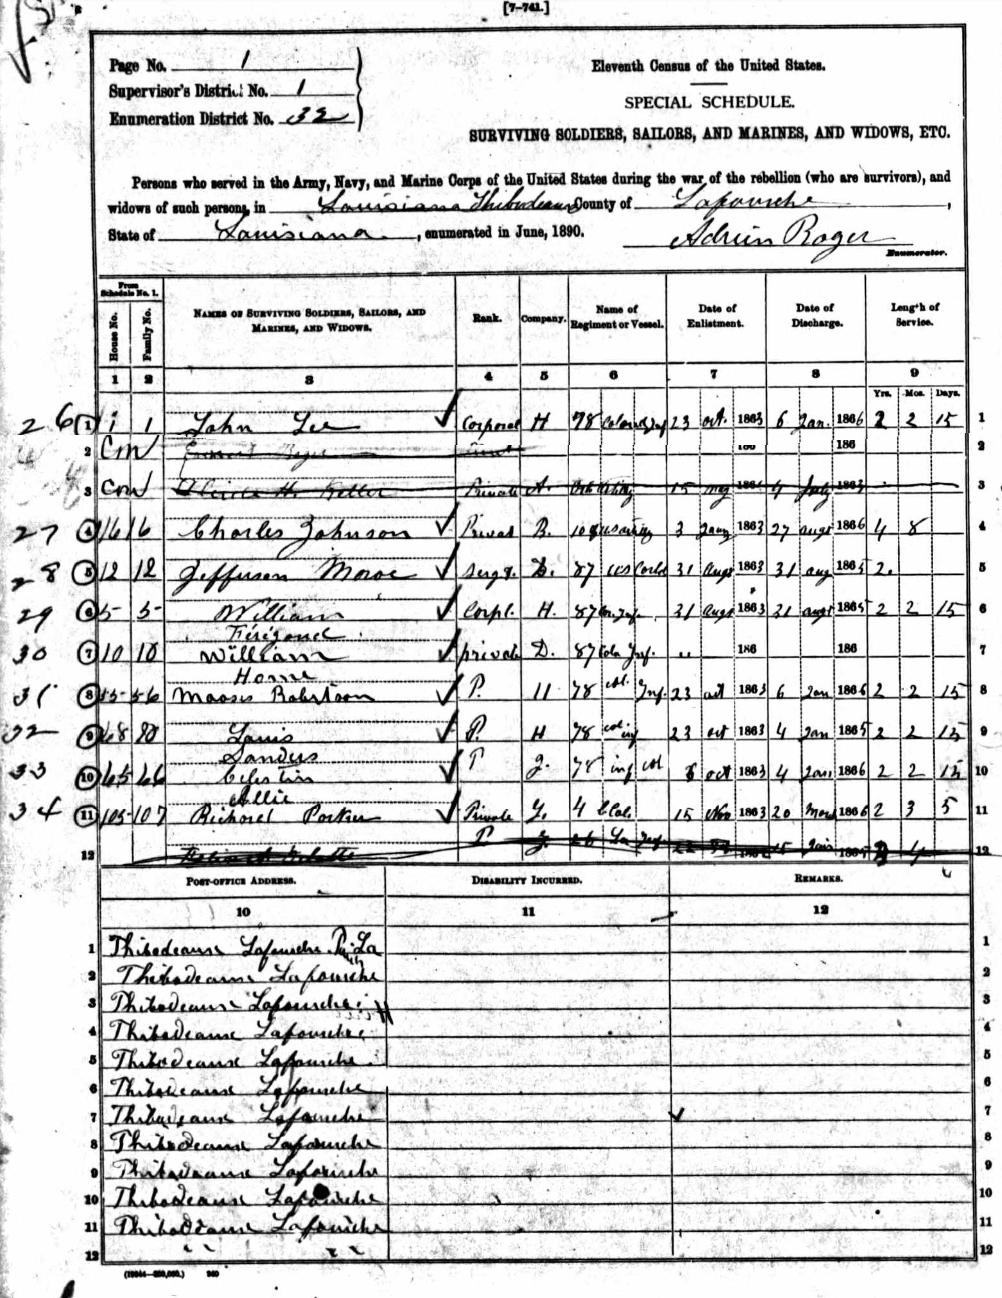 [7-741.]
Page No. 1
Supervisor's District No. 1
Enumeration District No. 32
Eleventh Census of the United States.
SPECIAL SCHEDULE.
SURVIVING SOLDIERS, SAILORS, AND MARINES, AND WIDOWS, ETC.
Persons who served in the Army, Navy, and Marine Corps of the United States during the war of the rebellion (who are survivors), and
widows of such persons, in Louisiana Thibodeaux County of Lafourche,
State of Louisiana, enumerated in June, 1890. Adrien Roger
Enumerator.
From Schedule No. 1.
House No. Family No. NAMES OF SURVIVING SOLDIERS, SAILORS, AND MARINES, AND WIDOWS. Rank. Company. Name of Regiment or Vessel. Date of Enlistment. Date of Discharge. Length of Service.
1 2 3 4 5 6 7 8 9
Yrs. Mos. Days.
26 1 1 1 John Lee Corporal H 78 Inf 23 oct. 1863 6 Jan. 1866 2 2 15 1
2 Con 186 2
3 Con Keller Private A. 15 may 4 July 1863 3
27 4 16 16 Charles Johnson Privat B. 3 1863 27 augt 1866 4 8 4
28 5 12 12 Jefferson Sergt. D. 87 us 31 Augt 1863 31 aug 1865 2. 5
29 6 5 5 William Corpl. H. 87 31 Augt 1863 31 augt 1865 2 2 15 6
30 7 10 10 William private D. 87 Inf. 186 186 7
Horne
31 8 56 Mooses Robertson P. 78 col. Inf. 23 oct 1863 6 Jan 1866 2 2 15 8
32 9 68 80 Louis P. H 78 col. inf 23 oct 1863 4 Jan 1865 2 2 15 9
Sanders
33 10 65 66 Celestin P J. 78 inf col 6 oct 1863 4 Jan 1866 2 2 15 10
Allie
34 11 105 107 Richard Parker Private 4 15 Nov 1863 20 1866 2 3 5 11
12 P J. 26 La Inf Jan 4 12
POST-OFFICE ADDRESS. DISABILITY INCURRED. REMARKS.
10 11 12
1 Thibodeaux Lafourche La 1
2 Thibodeaux Lafourche 2
3 Thibodeaux Lafourche 3
4 Thibodeaux Lafourche 4
5 Thibodeaux Lafourche 5
6 Thibodeaux Lafourche 6
7 Thibodeaux Lafourche 7
8 Thibodeaux Lafourche 8
9 Thibodeaux Lafourche 9
10 Thibodeaux Lafourche 10
11 Thibodeaux Lafourche 11
12 12